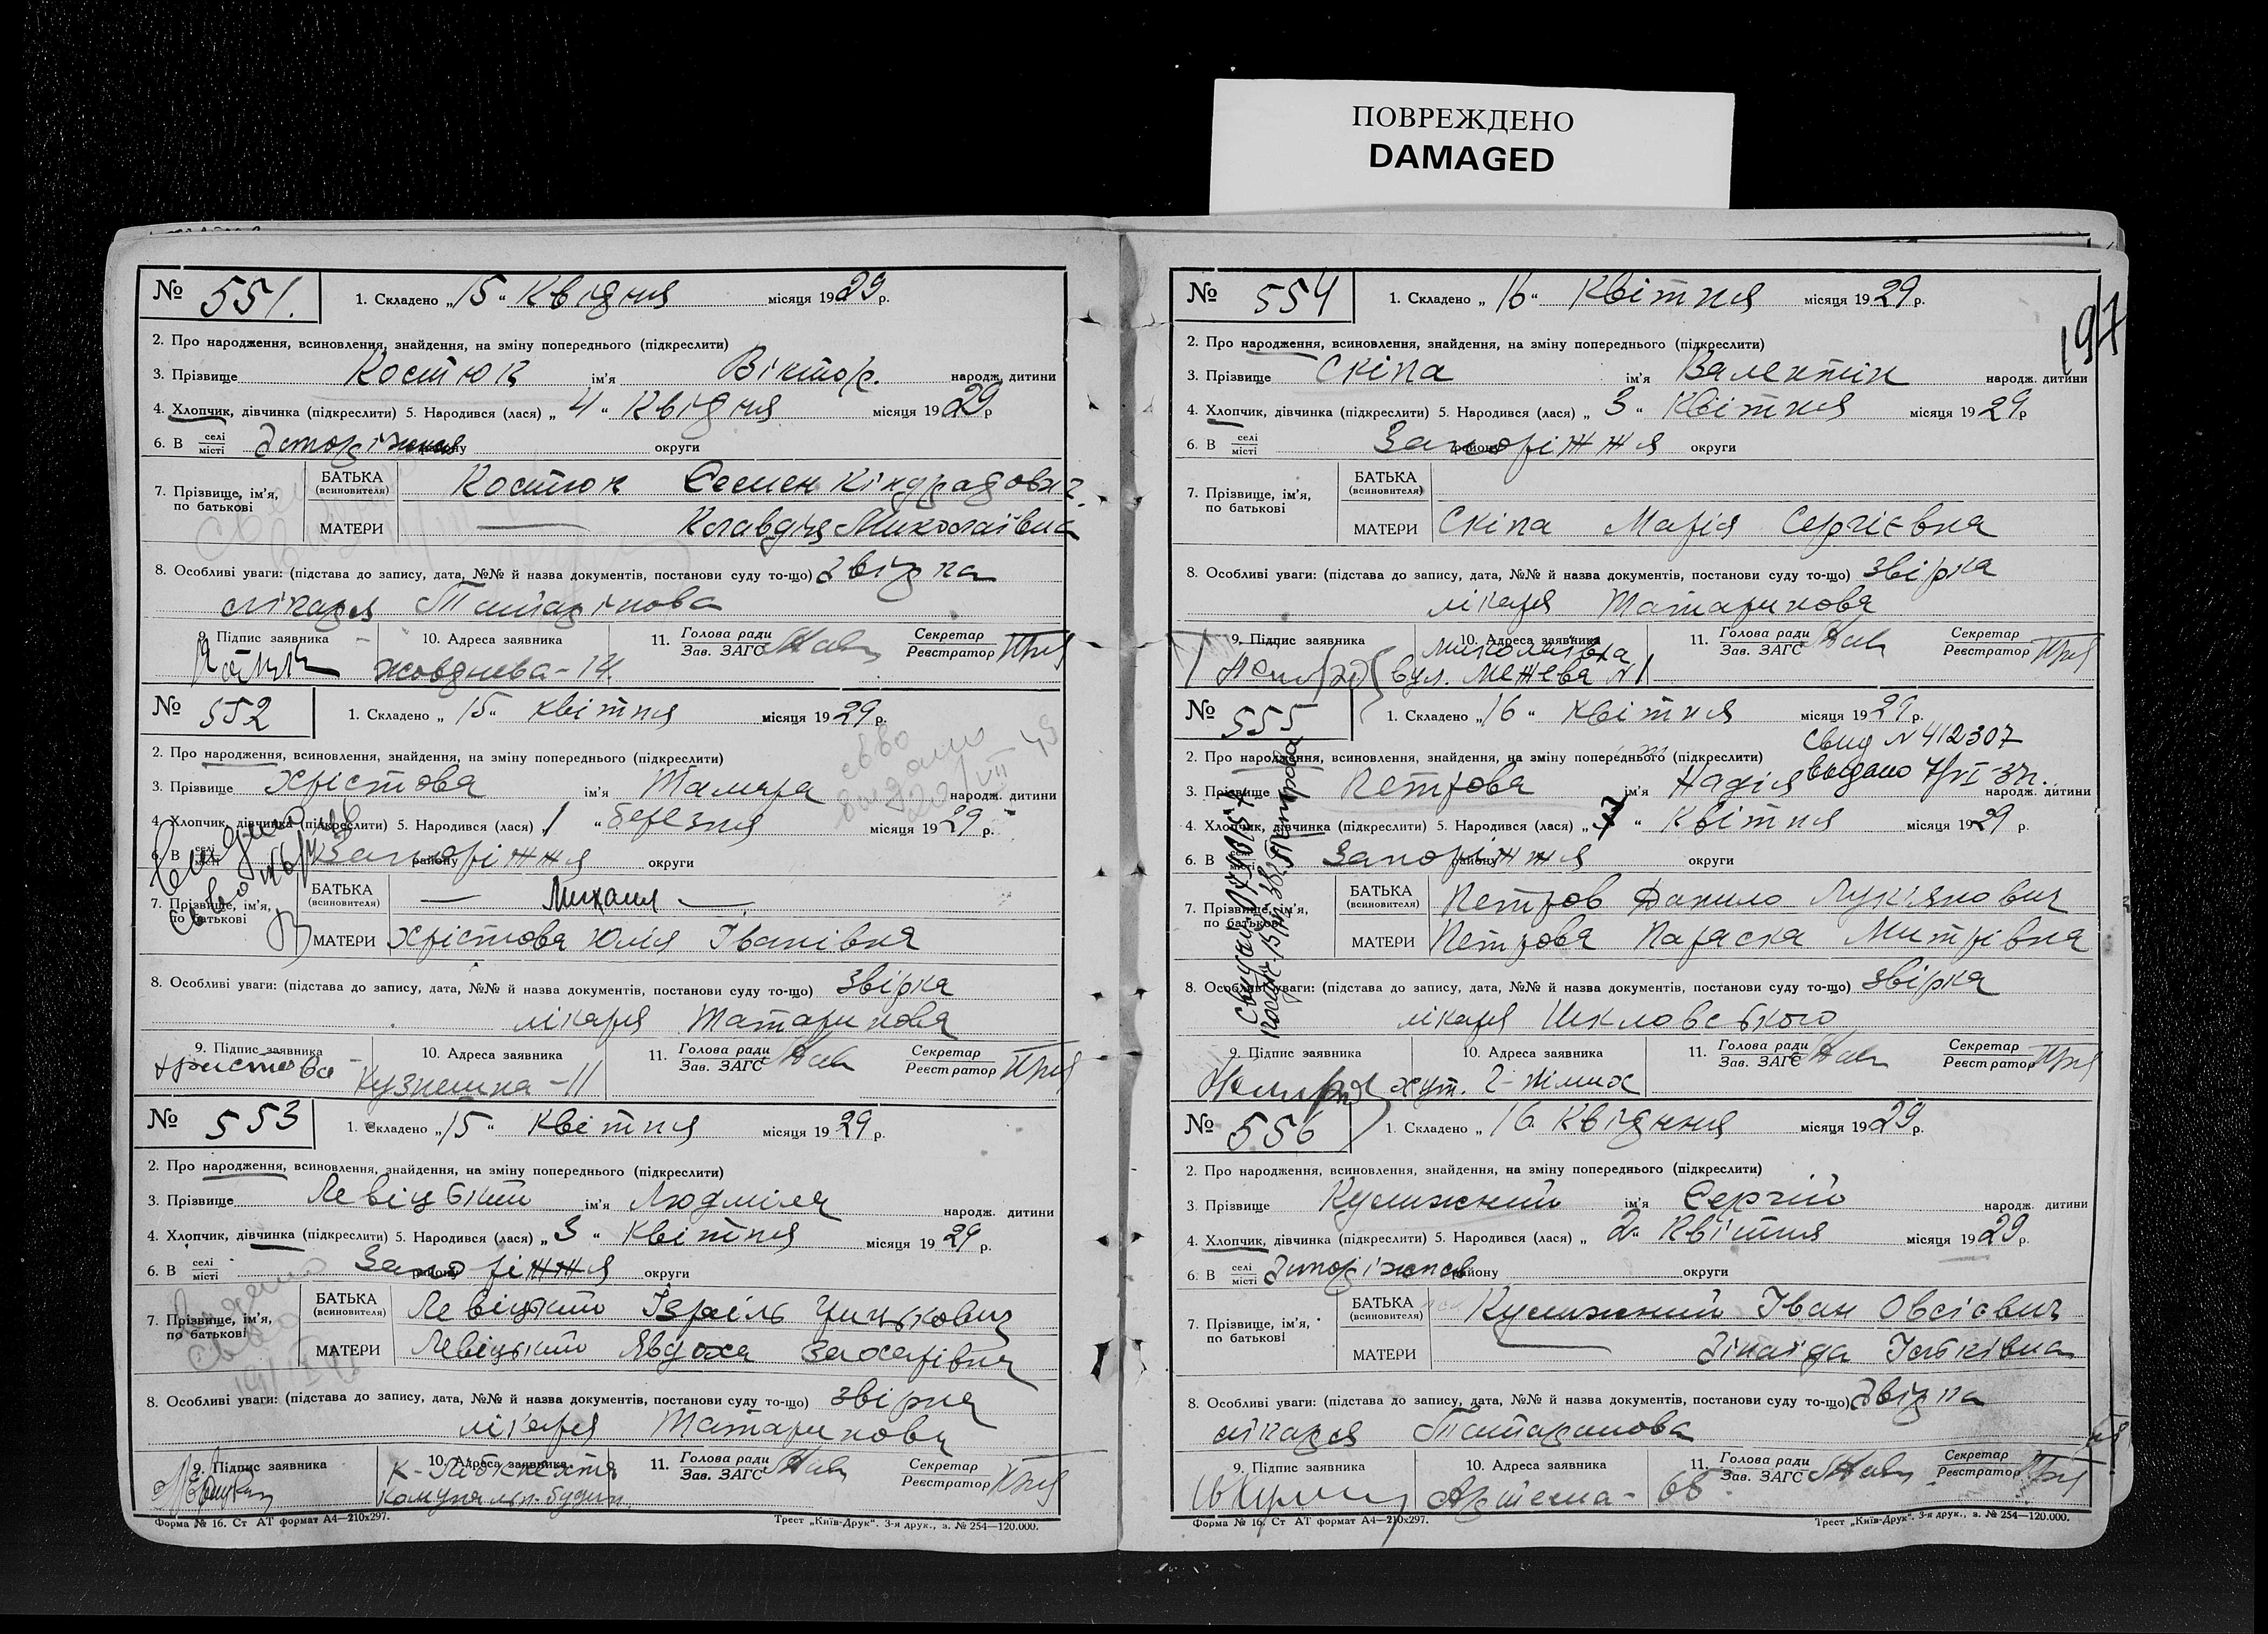 ПОВРЕЖДЕНО
DAMAGED
№ 551. 1. Складено „15“ Квітня місяця 1929 р.
2. Про народження, всиновлення, знайдення, на зміну попереднього (підкреслити)
3. Прізвище Костюк ім'я Віктор. народж. дитини
4. Хлопчик, дівчинка (підкреслити) 5. Народився (лася) „4“ Квітня місяця 1929 р
6. В селі місті Запоріжжя району округи
7. Прізвище, ім'я, по батькові
БАТЬКА (всиновителя) Костюк Семен Кіндратович
МАТЕРИ — Клавдія Миколаївна
8. Особливі уваги: (підстава до запису, дата, №№ й назва документів, постанови суду то-що) звірка
лікаря Татарінова
9. Підпис заявника 10. Адреса заявника 11. Голова ради Зав. ЗАГС Секретар Реєстратор
Жовтнева-14.
№ 552 1. Складено „15“ квітня місяця 1929 р.
2. Про народження, всиновлення, знайдення, на зміну попереднього (підкреслити)
3. Прізвище Хрістова ім'я Тамара народж. дитини
4. Хлопчик, дівчинка (підкреслити) 5. Народився (лася) „1“ березня місяця 1929 р.
6. В селі місті Запоріжжя району округи
7. Прізвище, ім'я, по батькові
БАТЬКА (всиновителя) — Михаил —
МАТЕРИ Хрістова Юлія Іванівна
8. Особливі уваги: (підстава до запису, дата, №№ й назва документів, постанови суду то-що) звірка
лікаря Татаринова
9. Підпис заявника 10. Адреса заявника 11. Голова ради Зав. ЗАГС Секретар Реєстратор
Христова Кузнешна-11
№ 553 1. Складено „15“ Квітня місяця 1929 р.
2. Про народження, всиновлення, знайдення, на зміну попереднього (підкреслити)
3. Прізвище Левіцький ім'я Людміла народж. дитини
4. Хлопчик, дівчинка (підкреслити) 5. Народився (лася) „3“ Квітня місяця 1929 р.
6. В селі місті Запоріжжя району округи
7. Прізвище, ім'я, по батькові
БАТЬКА (всиновителя) Левіцький Ізраїль
МАТЕРИ Левіцький Явдоха Захарівна
8. Особливі уваги: (підстава до запису, дата, №№ й назва документів, постанови суду то-що) звірка
лікаря Татаринова
9. Підпис заявника 10. Адреса заявника 11. Голова ради Зав. ЗАГС Секретар Реєстратор
К-Лібкнехта
Комунальн. будин.
Форма № 16. Ст АТ формат А4—210х297. Трест „Київ-Друк“. 3-я друк., з. № 254—120.000.
197
№ 554 1. Складено „16“ Квітня місяця 1929 р.
2. Про народження, всиновлення, знайдення, на зміну попереднього (підкреслити)
3. Прізвище Скіпа ім'я Валентін народж. дитини
4. Хлопчик, дівчинка (підкреслити) 5. Народився (лася) „3“ Квітня місяця 1929 р
6. В селі місті Запоріжжя району округи
7. Прізвище, ім'я, по батькові
БАТЬКА (всиновителя)
МАТЕРИ Скіпа Марія Сергієвна
8. Особливі уваги: (підстава до запису, дата, №№ й назва документів, постанови суду то-що) звірка
лікаря Татаринова
9. Підпис заявника 10. Адреса заявника 11. Голова ради Зав. ЗАГС Секретар Реєстратор
Миколаївка
вул. Межева №1
№ 555 1. Складено „16“ квітня місяця 1929 р.
свид №412307
2. Про народження, всиновлення, знайдення, на зміну попереднього (підкреслити)
выдано
3. Прізвище Петрова ім'я Надія народж. дитини
4. Хлопчик, дівчинка (підкреслити) 5. Народився (лася) „7“ Квітня місяця 1929 р.
6. В селі місті Запоріжжя району округи
7. Прізвище, ім'я, по батькові
БАТЬКА (всиновителя) Петров Данило Лук'янович
МАТЕРИ Петрова Параска Митрівна
8. Особливі уваги: (підстава до запису, дата, №№ й назва документів, постанови суду то-що) звірка
лікаря Шкловського
9. Підпис заявника 10. Адреса заявника 11. Голова ради Зав. ЗАГС Секретар Реєстратор
хут.
№ 556 1. Складено „16 Квітня місяця 1929 р.
2. Про народження, всиновлення, знайдення, на зміну попереднього (підкреслити)
3. Прізвище Кулижний ім'я Сергій народж. дитини
4. Хлопчик, дівчинка (підкреслити) 5. Народився (лася) „2“ Квітня місяця 1929 р.
6. В селі місті Запоріжжя району округи
7. Прізвище, ім'я, по батькові
БАТЬКА (всиновителя) Кулижний Іван Овсієвич
МАТЕРИ — Зінаїда
8. Особливі уваги: (підстава до запису, дата, №№ й назва документів, постанови суду то-що) звірка
лікаря Татаринова
9. Підпис заявника 10. Адреса заявника 11. Голова ради Зав. ЗАГС Секретар Реєстратор
Артема-68
Форма № 16. Ст АТ формат А4—210х297. Трест „Київ-Друк“. 3-я друк., з. № 254—120.000.